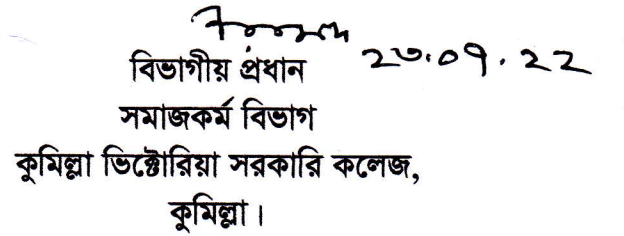 ২৩.০৭.২২
বিভাগীয় প্রধান
সমাজকর্ম বিভাগ
কুমিল্লা ভিক্টোরিয়া সরকারি কলেজ,
কুমিল্লা।